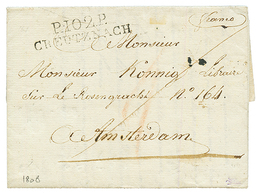 P.102.P.
CREUTZNACH
franco
A Monsieur
Monsieur Könnig Libraire
Sur Le Rosengracht N° 164.
à Amsterdam
1808